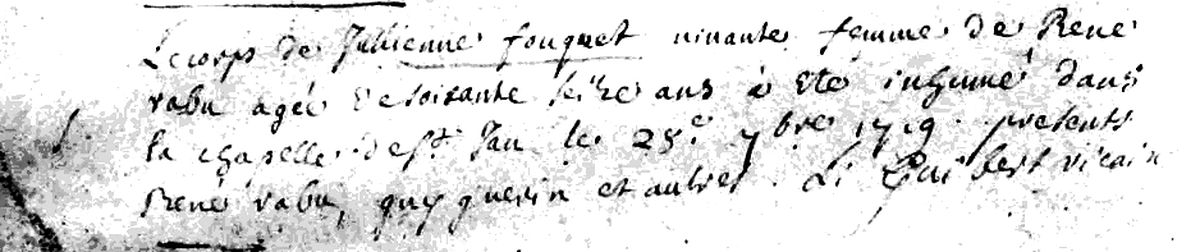 Le corps de Julienne fouquet vivante femme de René
rabu agée de soixante seize ans à eté inhumé dans
la chapelle de st Jan le 25e 7bre 1719. presents
René rabu, guy guerin et autres. Li Guibert vicaire